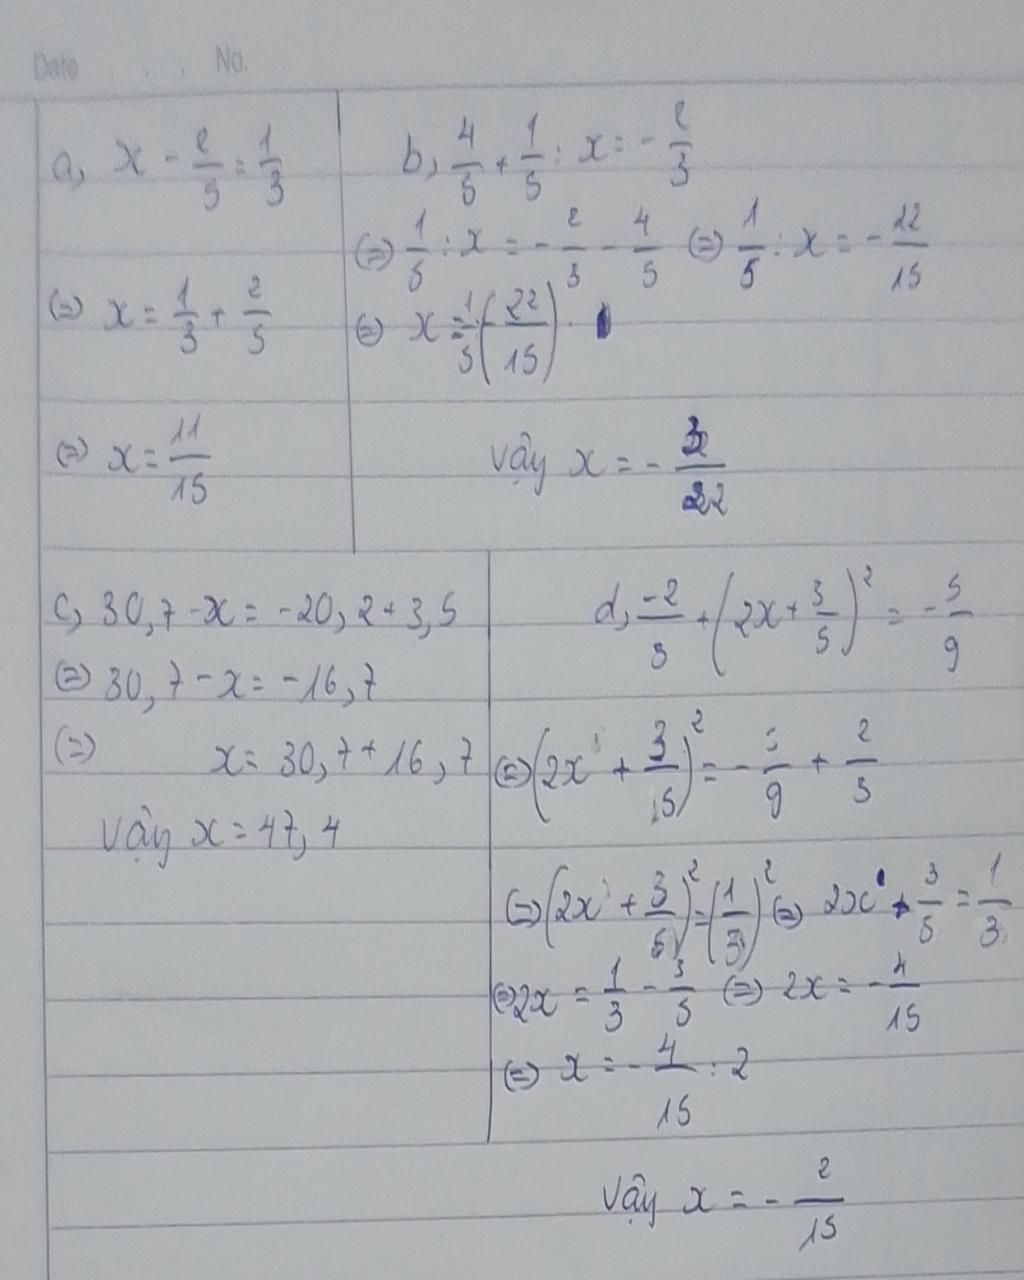 Date . . . No.
a, x - 2/5 = 1/3
(=) x = 1/3 + 2/5
(=) x = 11/15
b, 4/5 + 1/5 : x = - 2/3
(=) 1/5 : x = - 2/3 - 4/5 (=) 1/5 : x = - 22/15
(=) x = 1/5 : (- 22/15)
Vậy x = - 3/22
c, 30,7 - x = -20,2 + 3,5
(=) 30,7 - x = -16,7
(=) x = 30,7 + 16,7
Vậy x = 47,4
d, -2/3 + (2x + 3/5)² = - 5/9
(=) (2x + 3/15)² = - 5/9 + 2/3
(=) (2x + 3/5)² = (1/3)² (=) 2x + 3/5 = 1/3
(=) 2x = 1/3 - 3/5 (=) 2x = - 4/15
(=) x = - 4/15 : 2
Vậy x = - 2/15